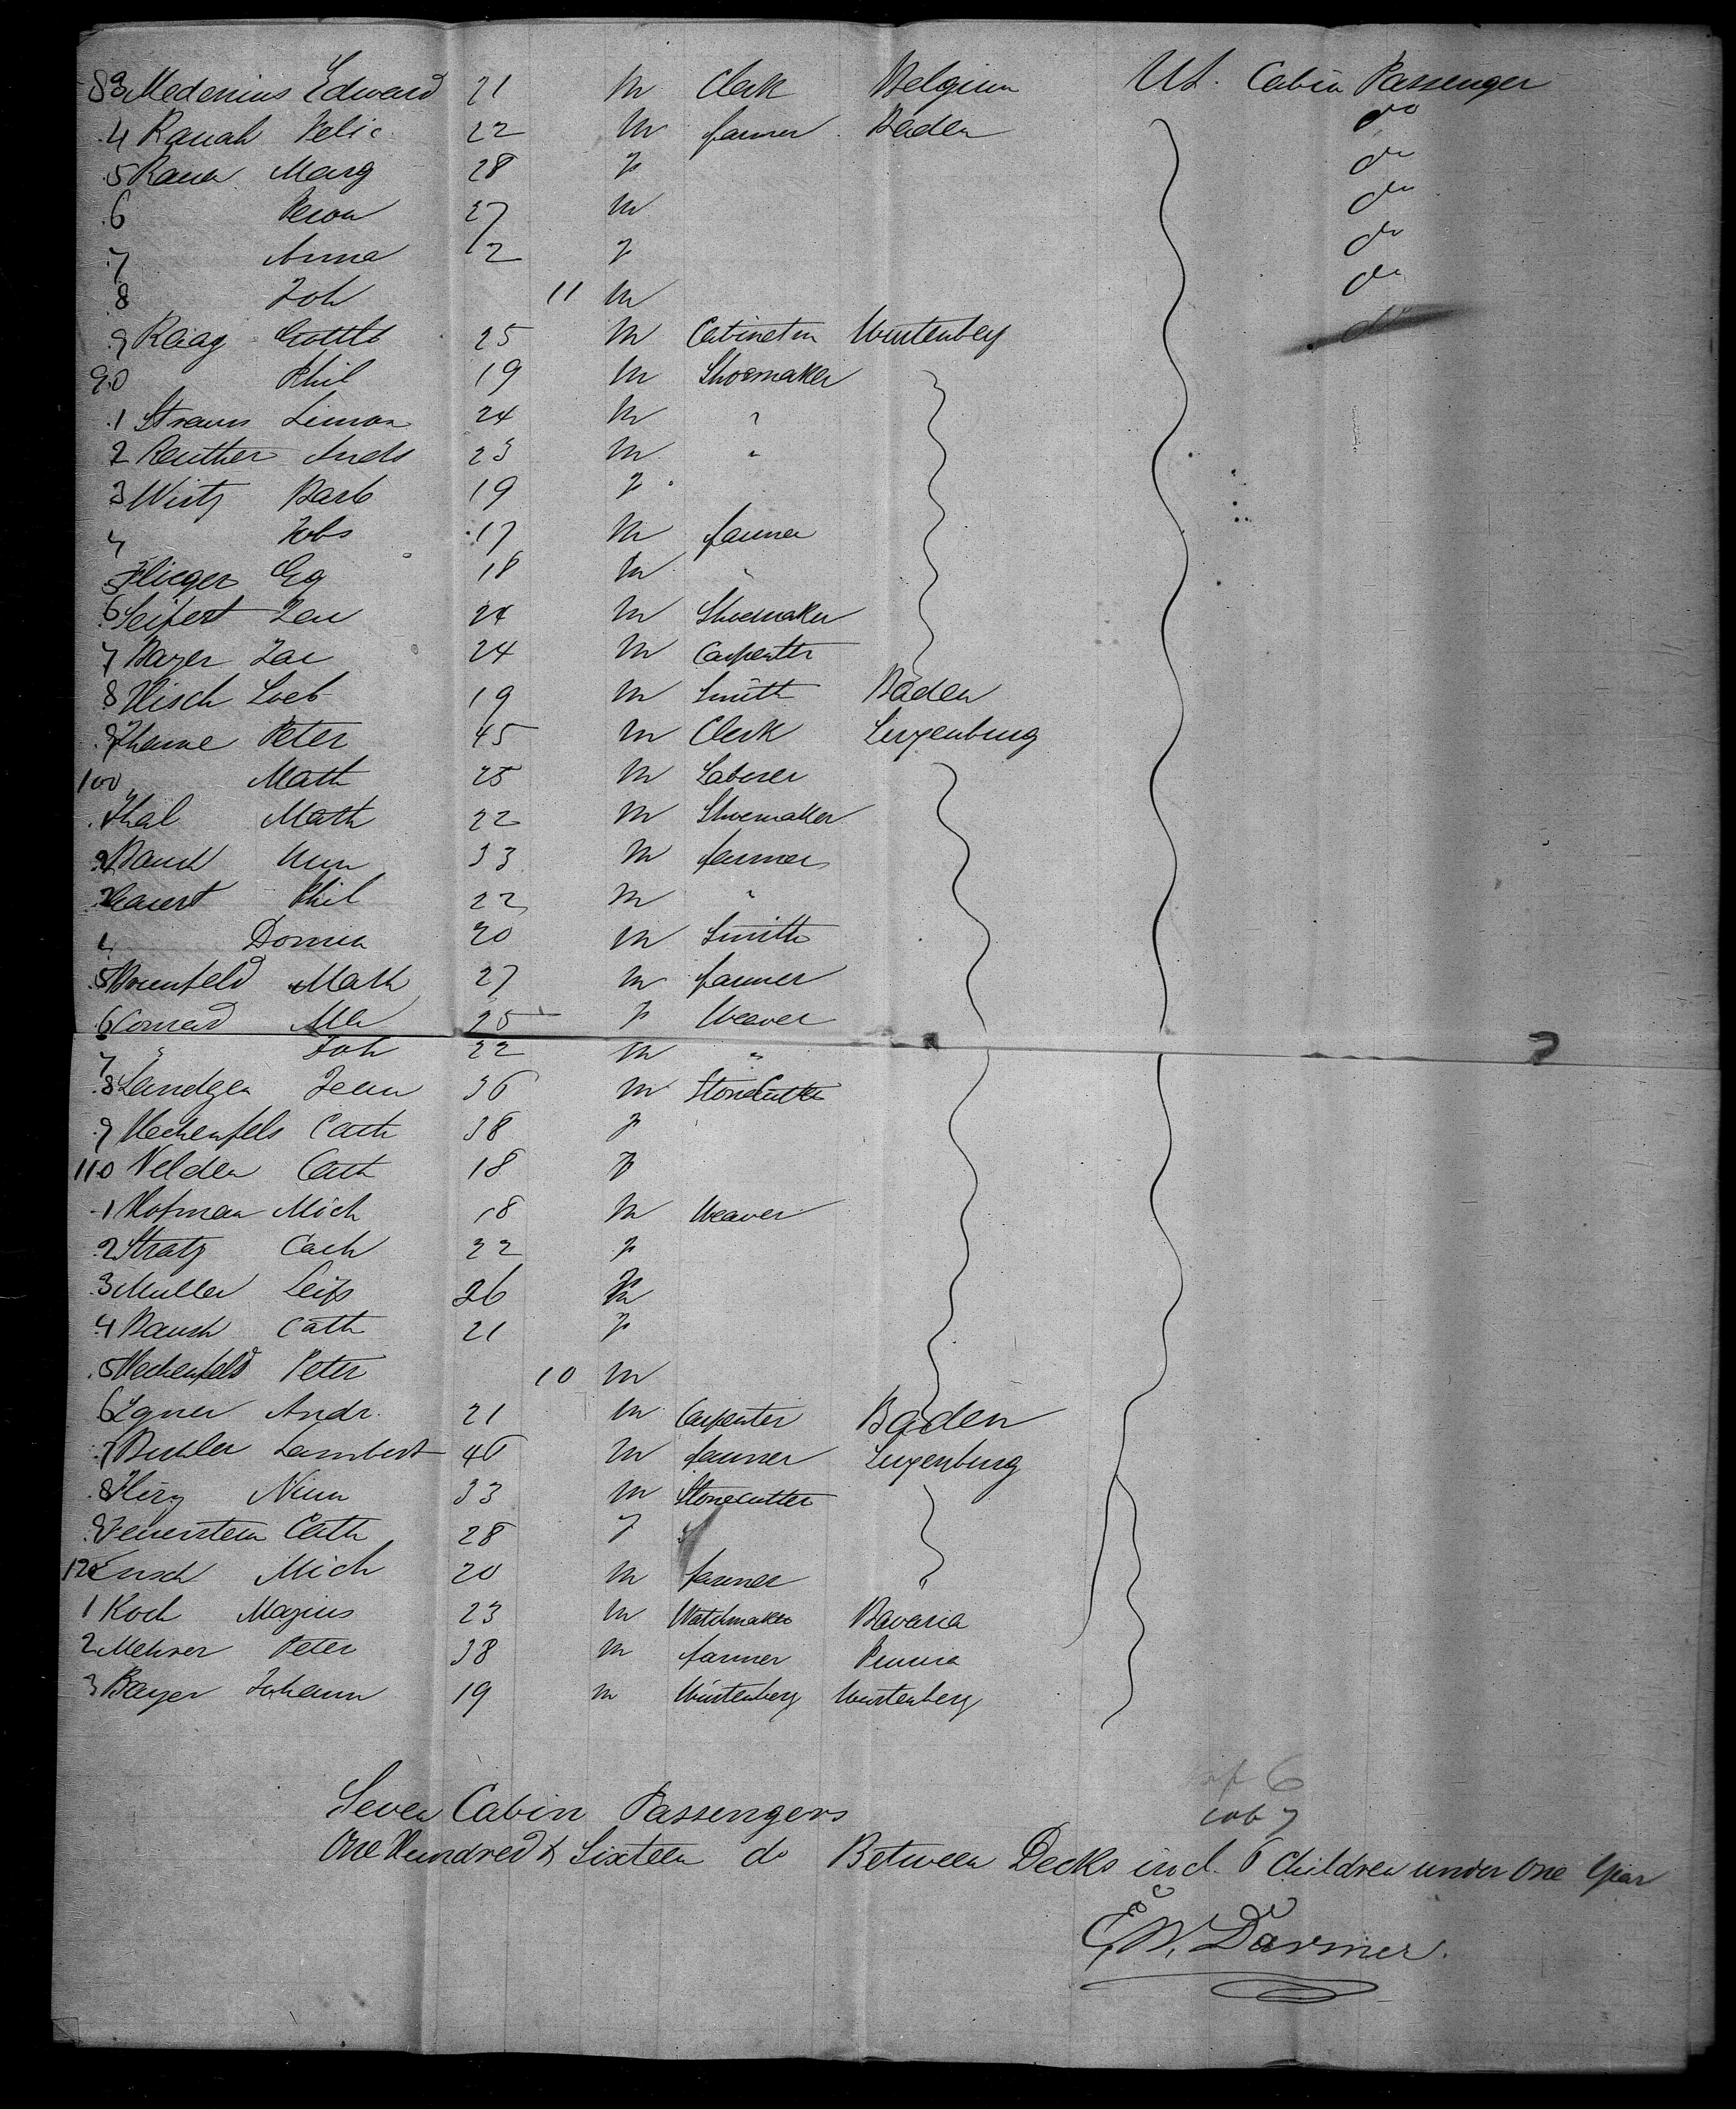 83 Medenius Edward 21 m Clerk Belgium U.S. Cabin Passenger
4 Rauah Felic 22 m farmer Baden do
5 Raua Marg 28 f do
6 27 m do
7 Anna 2 f do
8 Joh 11 m do
9 Raag Gottlb 25 m Wurtenberg do
90 Phil 19 m Shoemaker
1 Straus Simon 24 m "
2 Reuther Andr 23 m "
3 Wirtz Barb 19 f
4 17 m farmer
5 Flieger Gg 18 m "
6 Seifert 24 m Shoemaker
7 Bayer 24 m Carpenter
8 Hisch Loeb 19 m Smith Baden
9 Peter 45 m Clerk Luxenburg
100 " Math 25 m Laborer
1 Thal Math 22 m Shoemaker
2 Bauch 33 m farmer
3 Phil 22 m "
4 Domin 20 m Smith
5 Math 27 m farmer
6 Conrad Ma 25 f Weaver
7 " Joh 22 m "
8 Jean 36 m Stonecutter
9 Heckenfels Cath 38 f
110 Velden Cath 18 f
1 Hofman Mich 18 m Weaver
2 Stratz Cath 22 f
3 Muller 26
4 Bauch Cath 21 f
5 Heckenfels Peter 10 m
6 Egner Andr. 21 m Carpenter Baden
7 Buhler Lambert 46 m farmer Luxenburg
8 Nicn 33 m Stonecutter
9 Feuerstein Cath 28 f "
120 Ensch Mich 20 m farmer "
1 Koch Magnus 23 m Watchmaker Bavaria
2 Mehrer Peter 38 m farmer Prussia
3 Bayer Johann 19 m Wurtenberg Wurtenberg
6
Seven Cabin Passengers cab 7
One Hundred & Sixteen do Between Decks incl. 6 Children under One Year
E. W. Darmer.